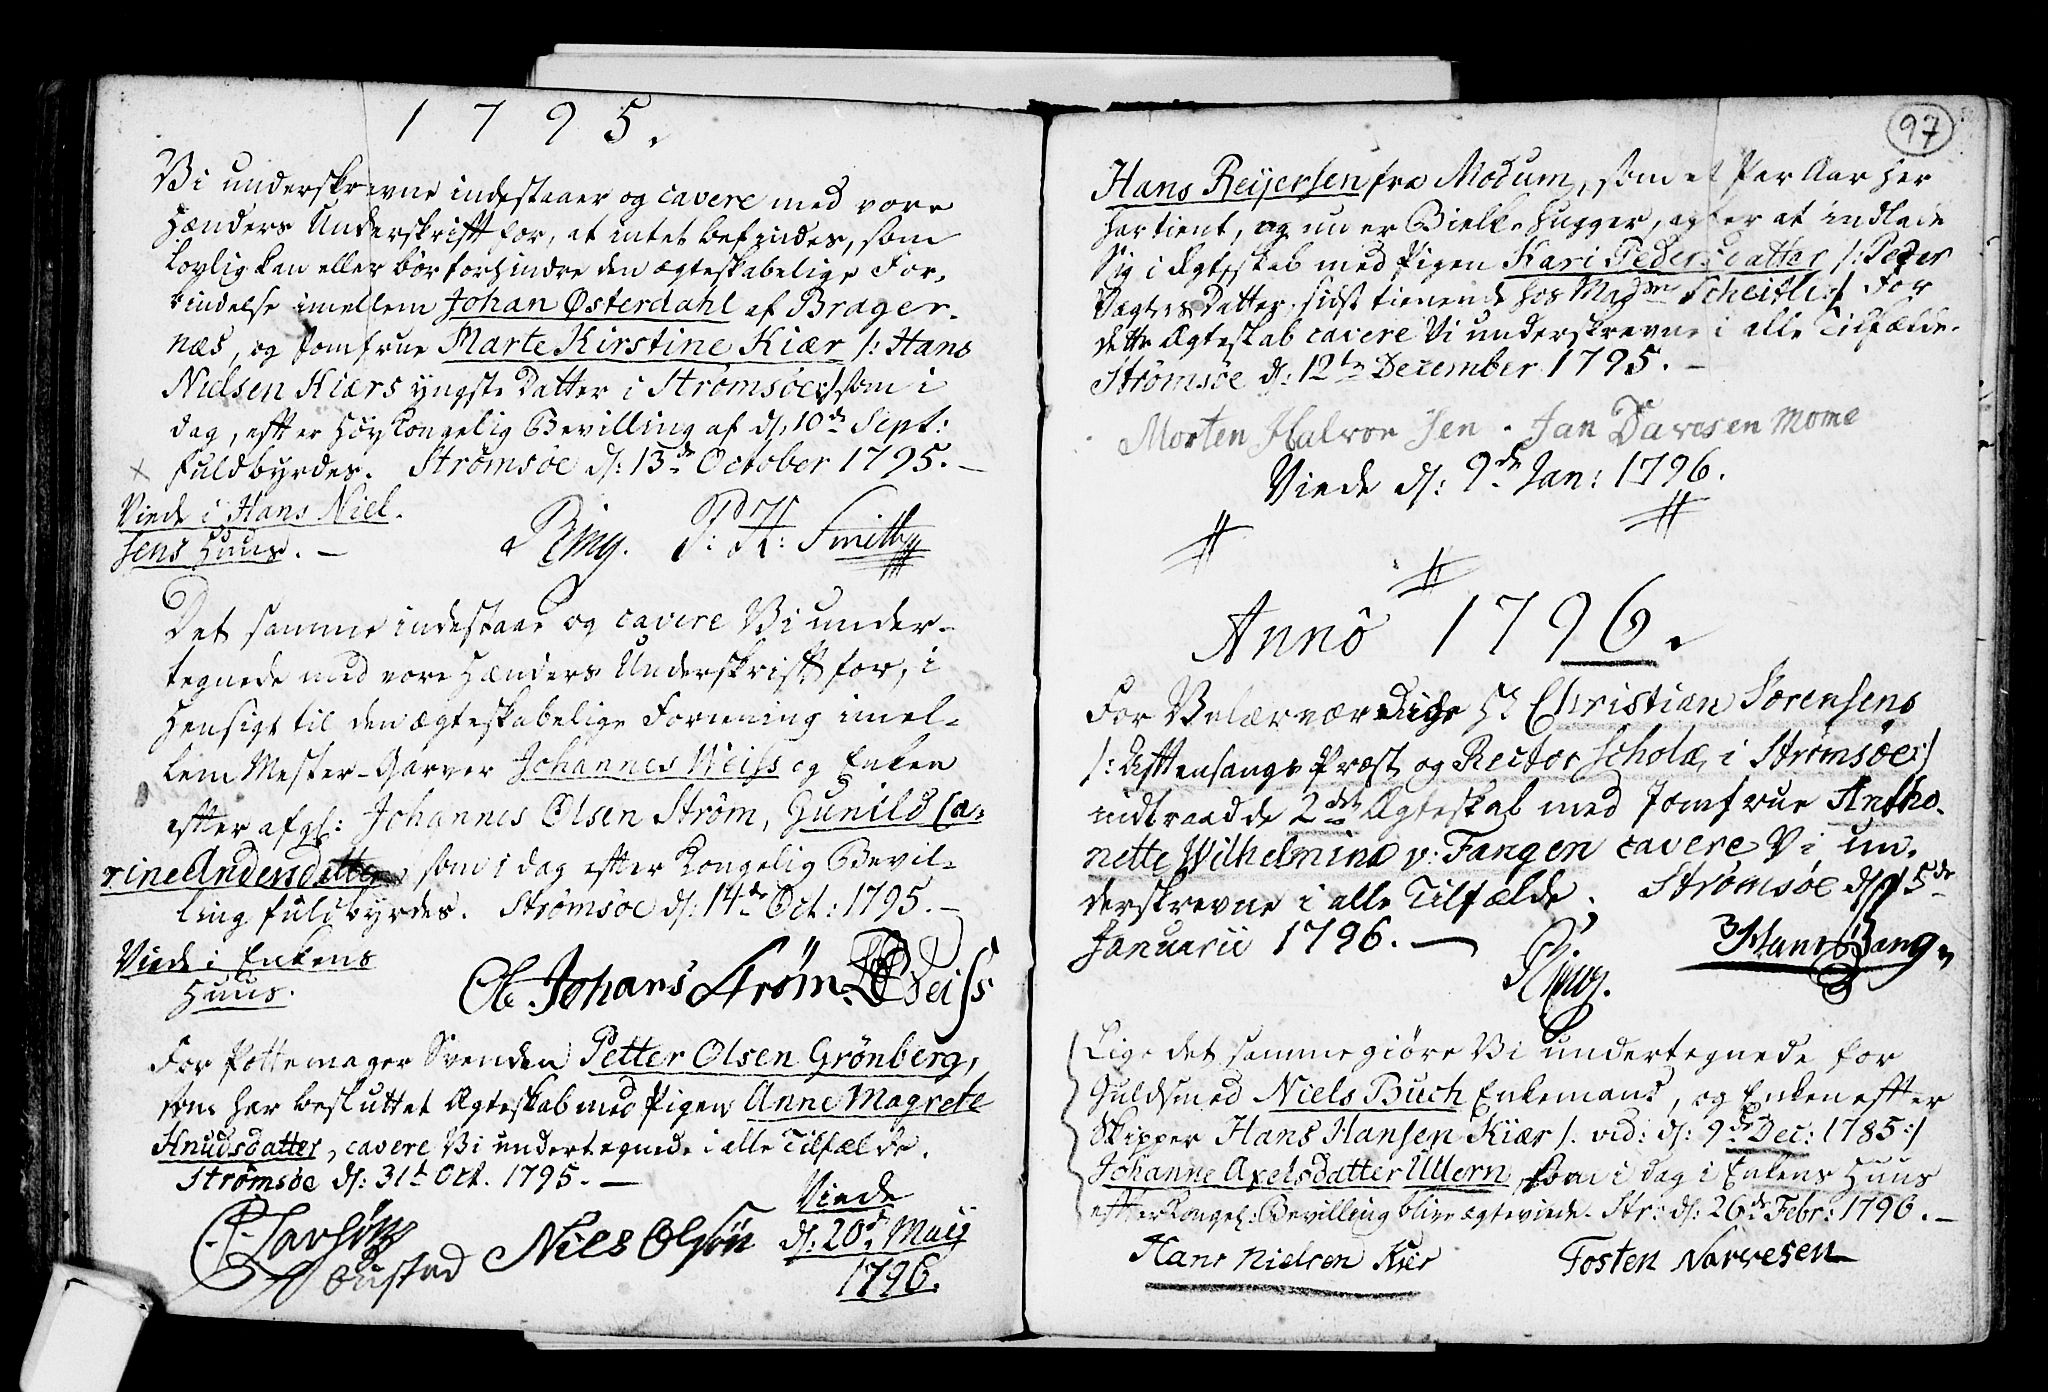 1795.
Vi underskrevne indestaaer og cavere med vore
Hænders Underskrift for, at intet befindes, som
lovlig kan eller bør forhindre den ægteskabelige For-
bindelse imellem Johan Østerdahl af Brager-
næs, og Jomfrue Marte Kirstine Kiær /: Hans
Nielsen Kiærs yngste Datter i Strømsøe:/ som i
dag, efter Høy Kongelig Bevilling af d/: 10de Sept:
fuldbyrdes. Strømsøe d/: 13de October 1795. —
Viede i Hans Niel-
sens Huus. —
Ring. P: H: Smith
Det samme indestaae og cavere Vi under-
tegnede med vore Hænders Underskrift for, i
Hensigt til den ægteskabelige Foreening imel-
lem Mester-Garver Johannes Weiss og Enken
efter afg: Johannes Olsen Strøm, Gunild Ca-
rine Andersdatter, som i dag efter Kongelig Bevil-
ling fuldbyrdes. Strømsøe d/: 14de Oct: 1795. —
Viede i Enkens
Huus.
Ole Johans Strøm. Weiss
For Pottemager Svenden Petter Olsen Grønberg,
som har besluttet Ægteskab med Pigen Anne Magrete
Knudsdatter, cavere Vi undertegnede i alle Tilfælde.
Strømsøe d/: 31te Oct. 1795. —
Viede
d/: 20de Maij
1796.
Niels Olsøn
97
Hans Reijersen fra Modum, som et Par Aar her
har tient, og nu er Bielke-Hugger, agter at indlade
sig i Ægteskab med Pigen Kari Pedersdatter /: Peder
Datter, sidst tienende hos Mad. Scheitli:/ For
dette Ægteskab cavere Vi underskrevne i alle Tilfælde.
Strømsøe d/: 12te December 1795. —
Morten Halvor Sen. Jan Davesen Mome
Viede d/: 9de Jan: 1796.
Anno 1796.
For Velærværdige Hr Christian Sørensens
/: Aftensangs Præst og Rector Scholæ i Strømsøe:/
indtraadde 2det Ægteskab med Jomfrue Antho-
nette Wilhelmina v: Fangen cavere Vi un-
derskrevne i alle Tilfælde. Strømsøe d/: 15de
Januarii 1796. —
Ring. Hans Bang
Lige det samme giøre Vi undertegnede for
Guldsmed Niels Buch Enkemand, og Enken efter
Skipper Hans Hansen Kiær /: vid: d/: 9de Dec: 1785:/
Johanne Axelsdatter Ullern, som i dag i Enkens Huus
efter Kongel: Bevilling blive ægteviede. Str: d/: 26de Febr: 1796. —
Hans Nielsen Kier Tosten Norvesen